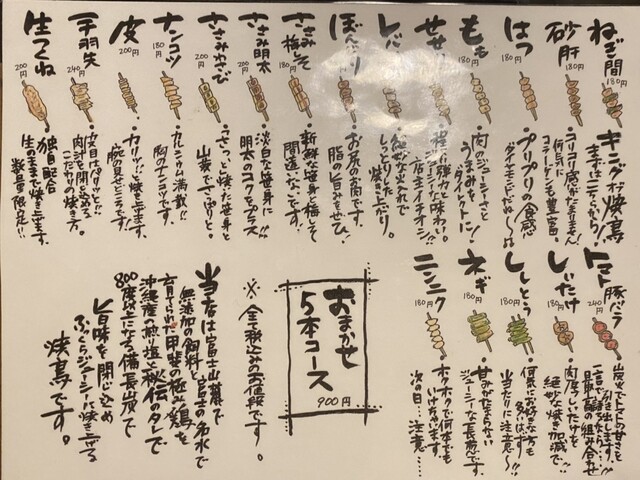 ねぎ間
180円
キング of 焼鳥
まずはこちらから!
砂肝
180円
コリコリ感がたまりません!
何気に
コラーゲンも豊富。
はつ
180円
プリプリの食感
ダイヤモンドだね〜
もも
180円
肉のジューシーさと
うまみを
ダイレクトに!
せせり
180円
店主イチオシ!!
レバー
しっとりした
焼き上がり。
ぼんぼり
お尻の希少です。
脂の旨みをぜひ!
ささみ梅しそ
180円
新鮮な笹身と梅しそ
間違いないです。
ささみ明太
200円
淡白な笹身に
明太のコクをプラス!!
ささみわさび
200円
さっと焼た笹身と
山葵でさっぱりと。
ナンコツ
180円
カルシウム満載!!
胸のナンコツです。
皮
200円
カリッに焼き上げます。
手羽先
240円
皮目パリッと!!
肉汁を閉じ込める
こだわりの焼き方。
生つくね
200円
独自配合
生のままで焼き上げます。
数量限定!!
トマト豚バラ
240円
炭火でトマトの甘さを
引き出します。
最高の組み合わせ
しいたけ
180円
肉厚しいたけを
絶妙な焼き加減で!!
ししとう
180円
何気にお好きな方も
多いはず!!
当たりに注意〜!
ネギ
180円
甘みがたまらない
ジューシーな長葱です。
ニンニク
180円
ホクホクで何本でも
いけちゃいます。
次の日…注意……
おまかせ
5本コース
900円
※全て税込みのお値段です。
当店は富士山麓で
無添加の飼料と富士の名水で
育てられた甲斐の極み鶏を
沖縄産の煎り塩と秘伝のタレで
800度以上になる備長炭で
旨味を閉じ込め
ふっくらジューシーに焼き上げる
焼鳥です。